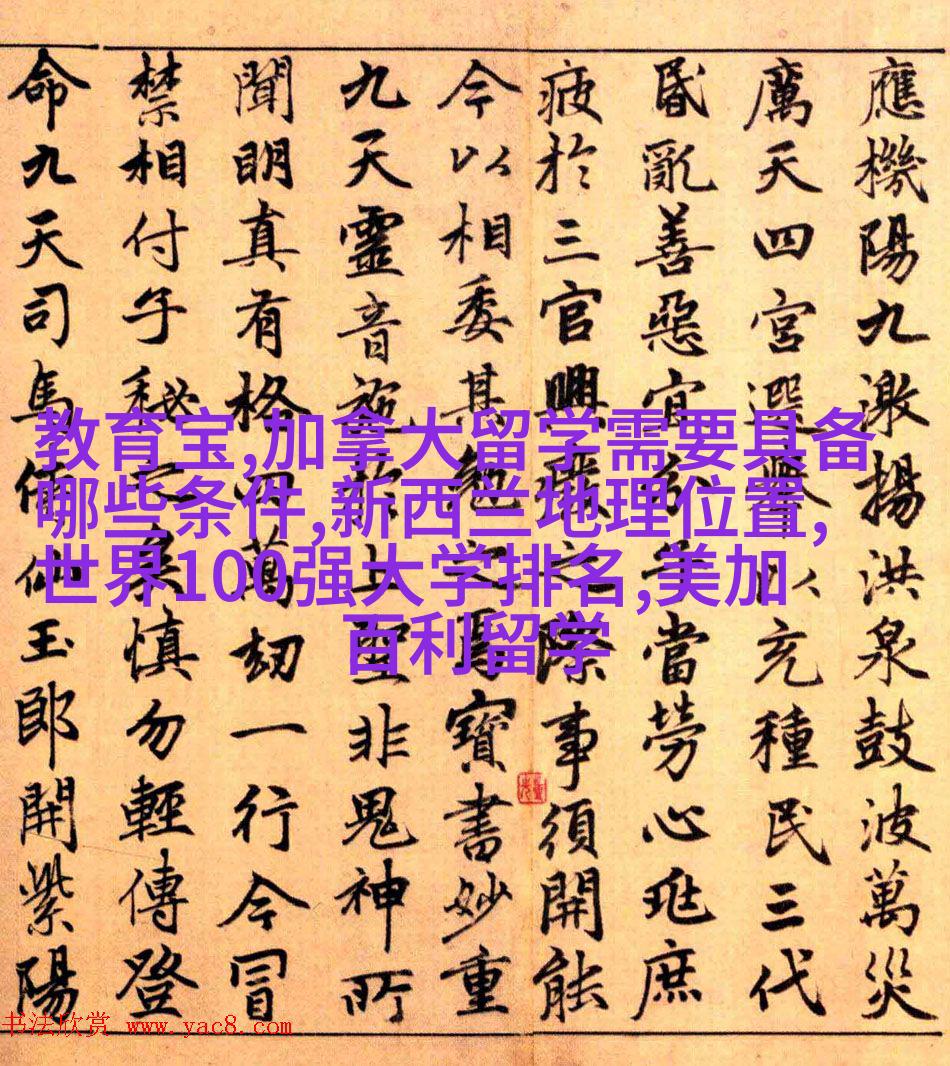 應機陽九激揚洪泉鼓波萬災
厲天四宮選舉以充種民三代
昏亂善惡宜分子當勞心兆庶
疲於三官興廢之際事須開能
今以相委其勉之焉寶書妙重
九天靈音施於上聖非鬼神所
聞明真有格四萬劫一行今冒
禁相付子秘之矣慎勿輕傳登
命九天司馬侍仙玉郎開紫陽
教育宝,加拿大留学需要具备
哪些条件,新西兰地理位置,
世界100强大学排名,美加
百利留学
书法欣赏 www.yac8.com